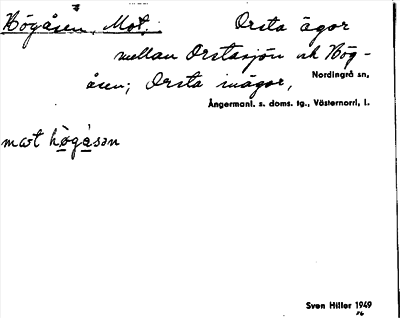 Högåsen, Mot. Orsta ägor
mellan Orstasjön och Hög-
åsen; Orsta inägor,
Nordingrå sn,
Ångermanl. s. doms. tg., Västernorrl. l.
mɷt hö̀gåsən
Sven Hiller 1949